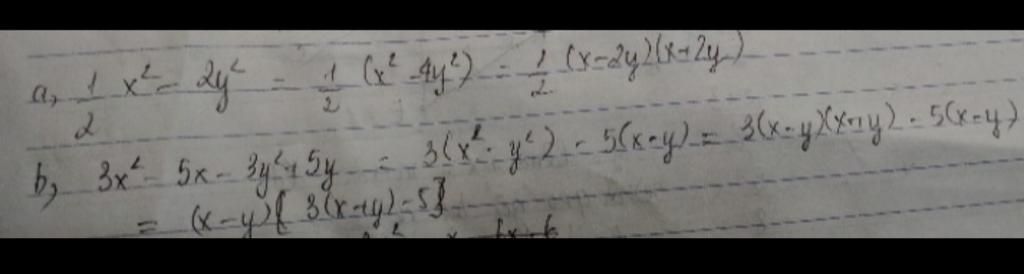 a, 1/2 x² - 2y² = 1/2 (x² - 4y²) = 1/2 (x-2y)(x+2y)
b, 3x² - 5x - 3y² + 5y = 3(x² - y²) - 5(x-y) = 3(x-y)(x+y) - 5(x-y)
= (x-y)[3(x+y)-5]